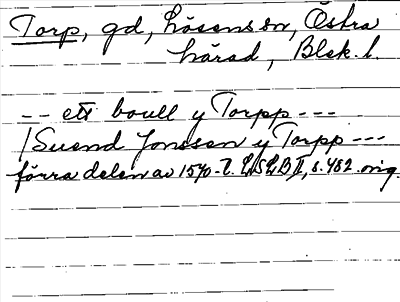 Torp, gd, Lösens sn, Östra
härad, Blek. l.
-- ett boull y Torpp ---
/Suend Jonssen y Torpp ---
förra delen av 15 -t. LSLB II, s. 482 orig.